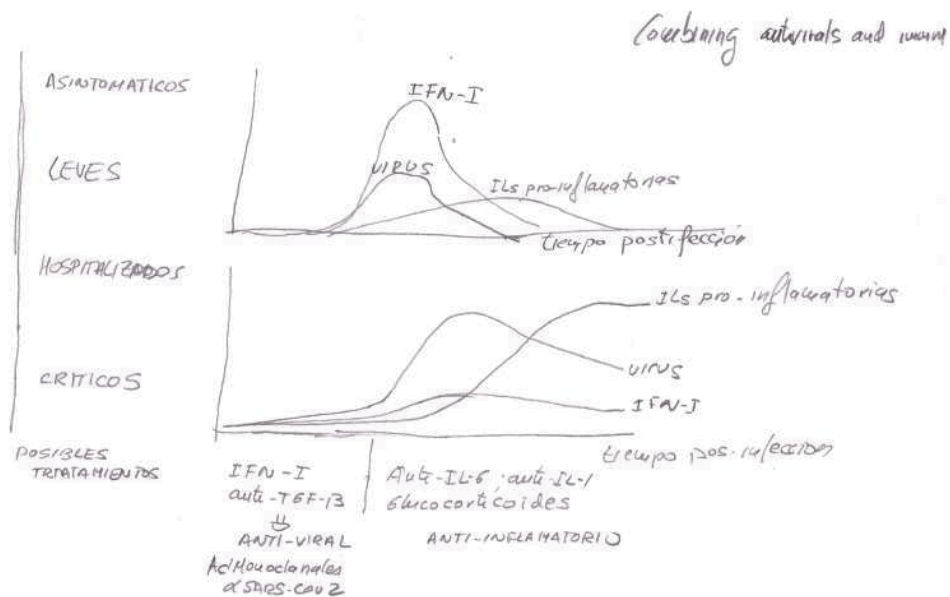 Combining antivirals and immun
ASINTOMATICOS
IFN-I
LEVES
VIRUS
ILs pro-inflamatorias
tiempo postifección
HOSPITALIZADOS
ILs pro-inflamatorias
CRITICOS
VIRUS
IFN-I
tiempo pos-infeccion
POSIBLES
TRATAMIENTOS
IFN-I
anti-TGF-β
ANTI-VIRAL
Ac Monoclonales
α SARS-CoV2
Anti-IL-6; anti-IL-1
Glucocorticoides
ANTI-INFLAMATORIO